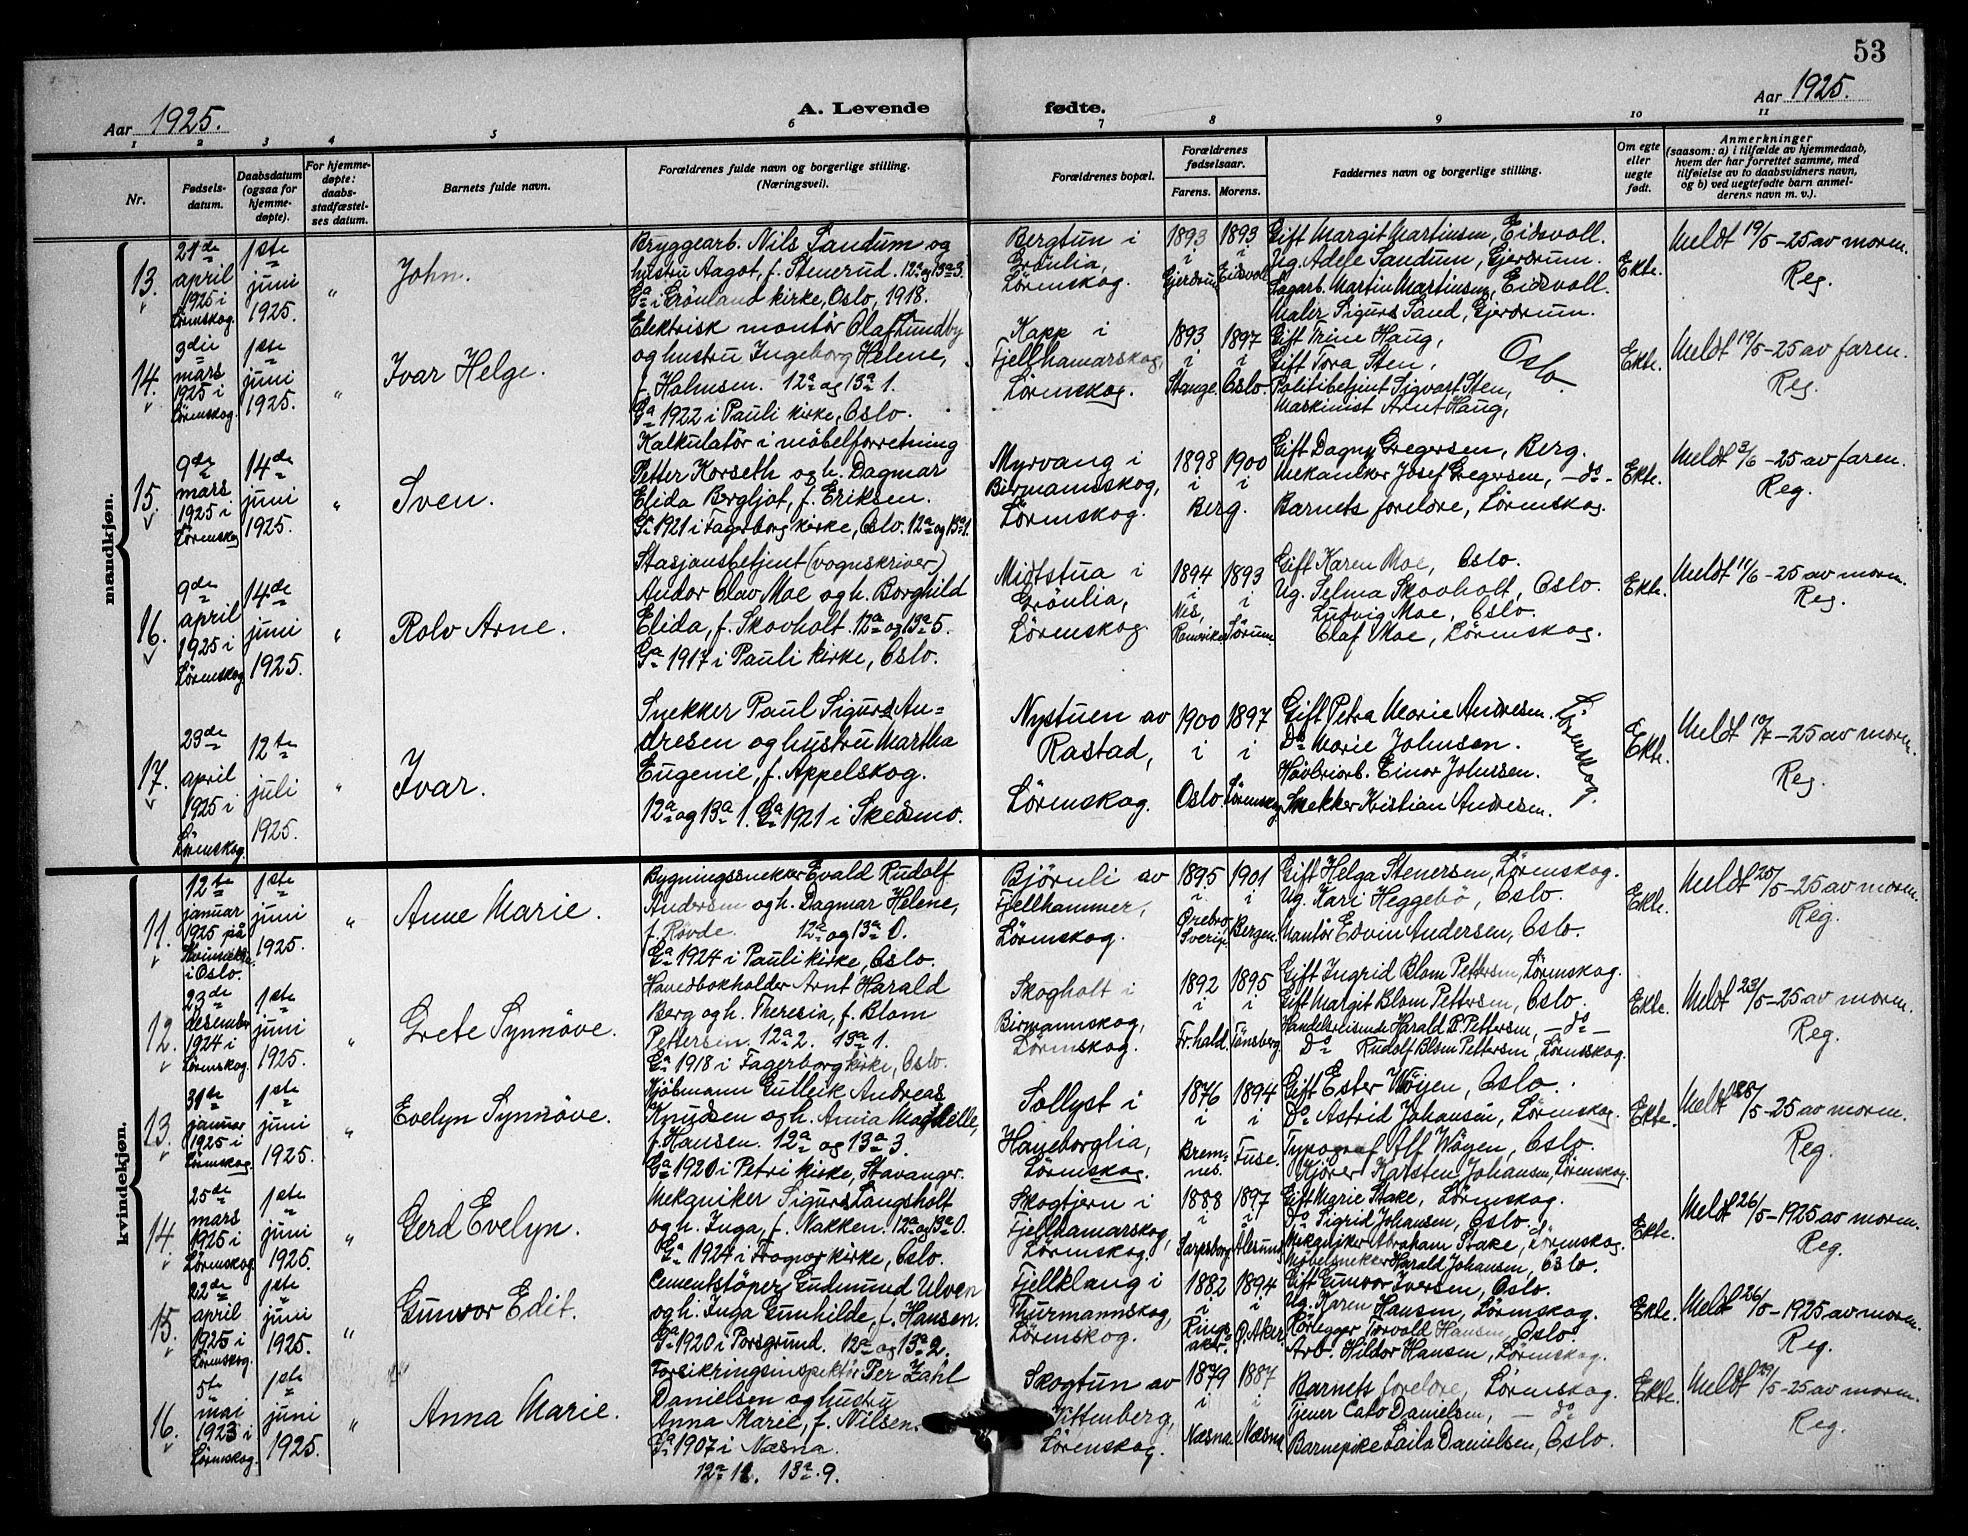 53
Aar 1925.
A. Levende fødte.
Aar 1925.
1 2 3 4 5 6 7 8 9 10 11
Nr.
Fødsels-
datum.
Daabsdatum
(ogsaa for
hjemme-
døpte).
For hjemme-
døpte:
daabs-
stadfæstel-
ses datum.
Barnets fulde navn.
Forældrenes fulde navn og borgerlige stilling.
(Næringsvei).
Forældrenes bopæl.
Forældrenes
fødselsaar.
Farens. Morens.
Faddernes navn og borgerlige stilling.
Om egte
eller
uegte
født.
Anmerkninger
(saasom: a) i tilfælde av hjemmedaab,
hvem der har forrettet samme, med
tilføielse av to daabsvidners navn,
og b) ved uegtefødte barn anmel-
derens navn m. v.).
mandkjøn.
13.
21de
april
1925 i
Lørenskog.
1ste
juni
1925.
"
John.
Bryggearb. Nils Sandum og
hustru Aagot, f. Stenerud. 12a og 13a 3.
Ga i Grönland kirke, Oslo, 1918.
Bergtun i
Grönlia,
Lørenskog.
1893
i
Gjerdrum
1893
i
Eidsvoll
Gift Margit Martinsen, Eidsvoll.
Ug. Adele Sandum, Gjerdrum.
Sagarb. Martin Martinsen, Eidsvoll.
Maler Sigurd Sand, Gjerdrum.
Ekte.
Meldt 19/5-25 av morm.
Reg.
14.
3die
mars
1925 i
Lørenskog.
1ste
juni
1925.
"
Ivar Helge.
Elektrisk montör Olaf Sundby
og hustru Ingeborg Helene,
f. Halmsen. 12a og 13a 1.
Ga 1922 i Pauli kirke, Oslo.
Kapp i
Fjellhamarskog,
Lørenskog.
1893
i
Stange.
1897
i
Oslo.
Gift Trine Haug,
Gift Tora Sten,
Politibetjent Sigvart Sten,
Maskinist Arnt Haug,
Oslo.
Ekte.
Meldt 19/5-25 av faren.
Reg.
15.
9de
mars
1925 i
Lørenskog
14de
juni
1925.
"
Sven.
Kalkulatör i möbelforretning
Petter Korseth og h. Dagmar
Elida Bergljot, f. Eriksen.
Ga 1921 i Fagerborg kirke, Oslo. 12a og 13a 1.
Myrvang i
Birmannsskog,
Lørenskog.
1898
i
1900
i
Berg.
Gift Dagny Gregersen, Berg.
Mekaniker Josef Gregersen, -do-
Barnets foreldre, Lørenskog.
Ekte.
Meldt 3/6-25 av faren.
Reg.
16.
9de
april
1925 i
Lørenskog
14de
juni
1925.
"
Rolv Arne.
Stasjonsbetjent (vognskriver)
Andor Olav Moe og h. Borghild
Elida, f. Skovholt. 12a og 13a 5.
Ga 1917 i Pauli kirke, Oslo.
Midtstua i
Grönlia,
Lørenskog.
1894
i
Nes,
Romerike
1893
i
Sørum
Gift Karen Moe, Oslo.
Ug. Selma Skovholt, Oslo.
Ludvig Moe, Oslo.
Olaf Moe, Lørenskog.
Ekte.
Meldt 11/6-25 av morm.
Reg.
17.
23de
april
1925 i
Lørenskog.
12te
juli
1925.
"
Ivar.
Snekker Paul Sigurd An=
dresen og hustru Martha
Eugenie, f. Appelskog.
12a og 13a 1. Ga 1921 i Skedsmo.
Nystuen av
Rastad,
Lørenskog.
1900
i
Oslo.
1897
i
Lørenskog
Gift Petra Marie Andresen.
Do Marie Johnsen.
Høvleriarb. Einar Johnsen.
Snekker Kristian Andresen.
Lørenskog.
Ekte.
Meldt 10/7-25 av morm.
Reg.
kvindekjøn.
11.
12te
januar
1925 på
i Oslo.
1ste
juni
1925.
"
Anne Marie.
Bygningssnekker Evald Rudolf
Andersen og h. Dagmar Helene,
f. Røvde. 12a og 13a 0.
Ga 1924 i Pauli kirke, Oslo.
Björnli av
Fjellhammer,
Lørenskog.
1895
i
Örebro
Sverige
1901
i
Bergen.
Gift Helga Stenersen, Lørenskog.
Ug. Kari Heggebö, Oslo.
Montör Edvin Andersen, Oslo.
Ekte.
Meldt 20/5-25 av morm.
Reg.
12.
23de
desember
1924 i
Lørenskog.
1ste
juni
1925.
"
Grete Synnöve.
Hovedbokholder Arnt Harald
Berg og h. Theresia, f. Blom
Pettersen. 12a 2. 13a 1.
Ga 1918 i Fagerborg kirke, Oslo.
Skogholt i
Birmannskog,
Lørenskog.
1892
i
Fr.hald.
1895
i
Tönsberg.
Gift Ingrid Blom Pettersen, Lørenskog.
Gift Margit Blom Pettersen, Oslo.
Handelsreisende Harald B. Pettersen, -do-
Do Rudolf Blom Pettersen, Lørenskog.
Ekte.
Meldt 23/5-25 av morm.
Reg.
13.
31te
januar
1925 i
Lørenskog
1ste
juni
1925.
"
Evelyn Synnöve.
Kjöbmann Gulleik Andreas
Knudsen og h. Anna Magdelle,
f. Hansen. 12a og 13a 3.
Ga 1920 i Petri kirke, Stavanger.
Sollyst i
Haneborglia,
Lørenskog.
1876
i
Brem-
nes.
1894
i
Fuse.
Gift Ester Wöyen, Oslo.
Do Astrid Johansen, Lørenskog.
Typograf Alf Wöyen, Oslo.
Kjörer Karsten Johansen, Lørenskog.
Ekte.
Meldt 25/5-25 av morm.
Reg.
14.
25de
mars
1925 i
Lørenskog
1ste
juni
1925.
"
Gerd Evelyn.
Mekaniker Sigurd Langsholt
og h. Inga, f. Nakken. 12a og 13a 0.
Ga 1924 i Frogner kirke, Oslo.
Skogtjern i
Fjellhamarskog,
Lørenskog.
1888
i
Sarpsborg
1897
i
Ålesund
Gift Marie Stake, Lørenskog.
Do Sigrid Johansen, Oslo.
Mekaniker Abraham Stake, Lørenskog.
Möbelsnekker Harald Johansen, Oslo.
Ekte.
Meldt 26/5-1925 av morm.
Reg.
15.
22de
april
1925 i
Lørenskog.
1ste
juni
1925.
"
Gunvor Edit.
Cementstöper Gudmund Ulven
og h. Inga Gunhilde, f. Hansen.
Ga 1920 i Porsgrund. 12a og 13a 2.
Fjellklang i
Thurmannskog,
Lørenskog.
1882
i
Rings-
aker.
1894
i
Ö. Aker
Gift Gunvor Iversen, Oslo.
Ug. Karen Hansen, Lørenskog.
Rörlegger Torvald Hansen, Oslo.
Arb. Hildor Hansen, Lørenskog.
Ekte.
Meldt 26/5-1925 av morm.
Reg.
16.
5te
mai
1923 i
Lørenskog.
1ste
juni
1925.
"
Anna Marie.
Forsikringsinspektör Per Zahl
Danielsen og hustru
Anna Marie, f. Nilsen.
Ga 1907 i Næsna.
12a 12. 13a 9.
Skogtun av
Wittenberg,
Lørenskog.
1879
i
Næsna.
1887
i
Næsna
Barnets foreldre, Lørenskog.
Tjener Cato Danielsen, -do
Barnepike Laila Danielsen, Oslo.
Ekte.
Meldt 29/5-25 av morm.
Reg.